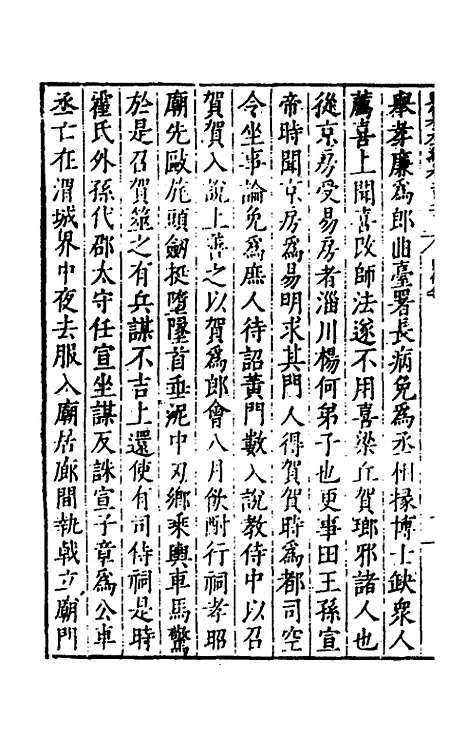 舉孝廉爲郎曲臺署長病免爲丞相掾博士缺衆人
薦喜上聞喜改師法遂不用喜梁丘賀瑯邪諸人也
從京房受易房者淄川楊何弟子也更事田王孫宣
帝時聞京房爲易明求其門人得賀賀時爲都司空
令坐事論免爲庶人待詔黄門數入說教侍中以召
賀賀入說上善之以賀爲郎會八月飲酎行祠孝昭
廟先敺旄頭劒挺墮墜首垂泥中刃鄉乘輿車馬驚
於是召賀筮之有兵謀不吉上還使有司侍祠是時
霍氏外孫代郡太守任宣坐謀反誅宣子章爲公車
丞亡在渭城界中夜去服入廟居廊間執戟立廟門